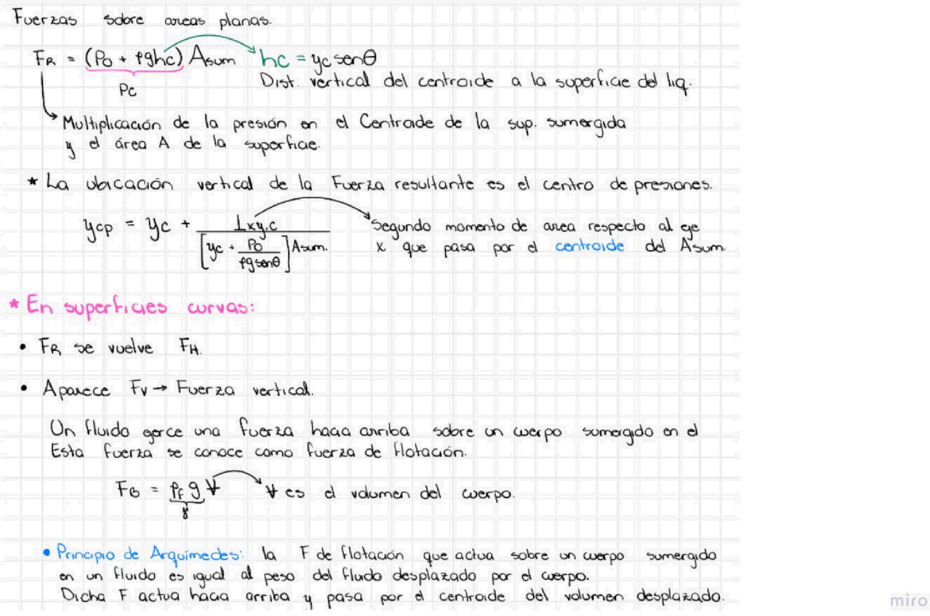 Fuerzas sobre areas planas.
FR = (Po + ρghc) Asum hc = yc senθ
Pc
Dist. vertical del centroide a la superficie del liq.
Multiplicación de la presión en el Centroide de la sup. sumergida
y el área A de la superficie.
* La ubicación vertical de la Fuerza resultante es el centro de presiones.
ycp = yc + Ixy,c / [yc + Po / ρg senθ] Asum.
Segundo momento de area respecto al eje
x que pasa por el centroide del Asum
* En superficies curvas:
• FR se vuelve FH.
• Aparece Fv → Fuerza vertical.
Un fluido ejerce una fuerza hacia arriba sobre un cuerpo sumergido en el
Esta fuerza se conoce como fuerza de flotación.
FB = ρf g V V es el volumen del cuerpo.
γ
• Principio de Arquimedes: la F de flotación que actua sobre un cuerpo sumergido
en un fluido es igual al peso del fluido desplazado por el cuerpo.
Dicha F actua hacia arriba y pasa por el centroide del volumen desplazado.
miro